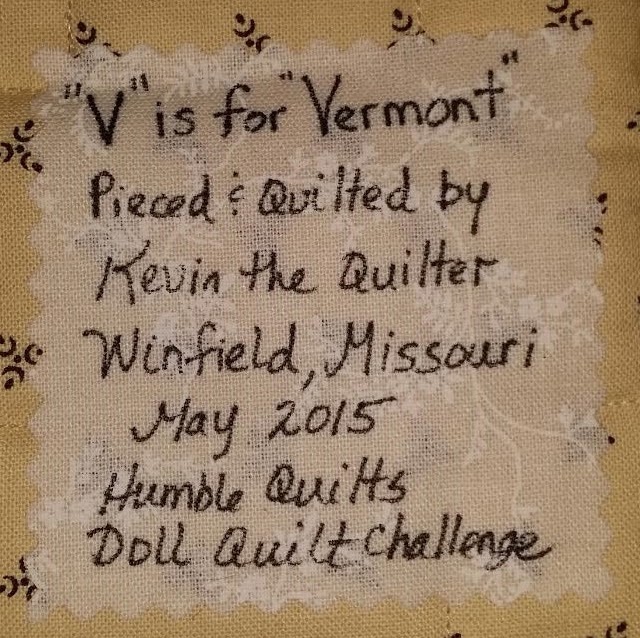 "V" is for "Vermont"
Pieced & Quilted by
Kevin the Quilter
Winfield, Missouri
May 2015
Humble Quilts
Doll Quilt Challenge